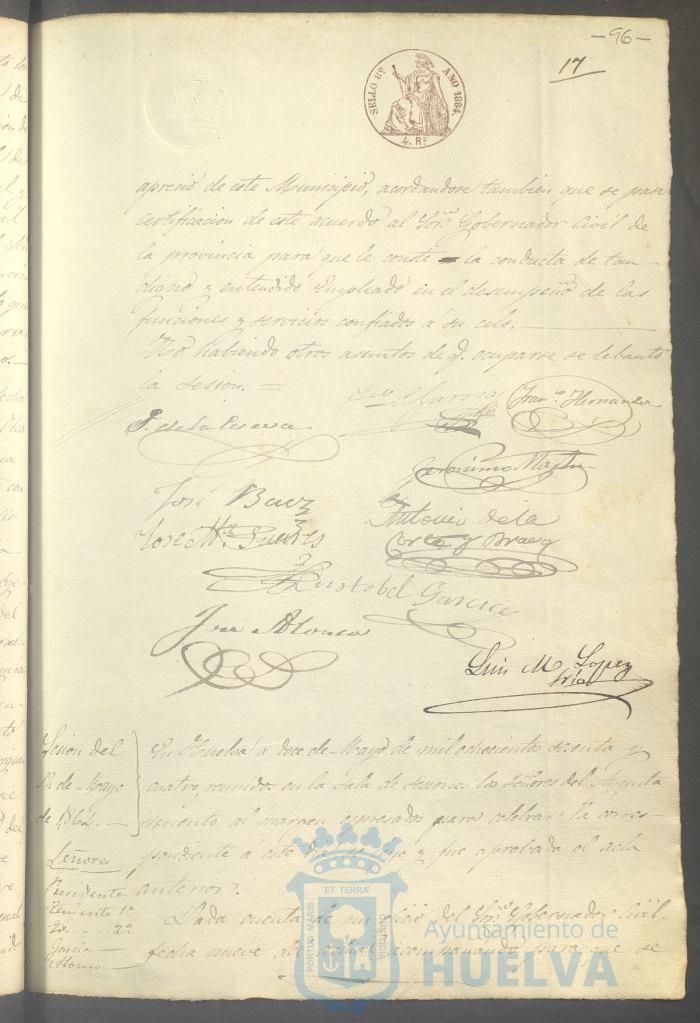 —96—
17
SELLO 8º AÑO 1864.
4. Rˢ
aprecio de este Municipio, acordandose tambien que se pase
certificacion de este acuerdo al Sor. Gobernador Civil de
la provincia para que le conste la conducta de tan
digno y entendido Empleado en el desempeño de las
funciones y servicios confiados á su celo.
No habiendo otros asuntos de q. ocuparse se lebantó
la sesion. =
Franco. Hernandez
P. de la
Geronimo Martin
José Baez
Antonio de la
Jose Ma. Suares
Corte y Bravo
Cristobal Garcia
Alonso
Luis M. Lopez
Sesion del
12 de Mayo
de 1864.
Señores
Presidente
Teniente 1º
Id. 2º
Garcia
Alonso
En Huelva á doce de Mayo de mil ochocientos sesenta y
cuatro, reunidos en la Sala de sesiones los Señores del Ayunta
miento al margen espresados para celebrar la corres-
pondiente á este dia y fue aprobada el acta
anterior.
Dada cuenta de un oficio del Sor. Gobernador Civil,
fecha nueve del actual acompañando para que se
PORTUS MARIS ET TERRÆ CUSTODIA
Ayuntamiento de
HUELVA